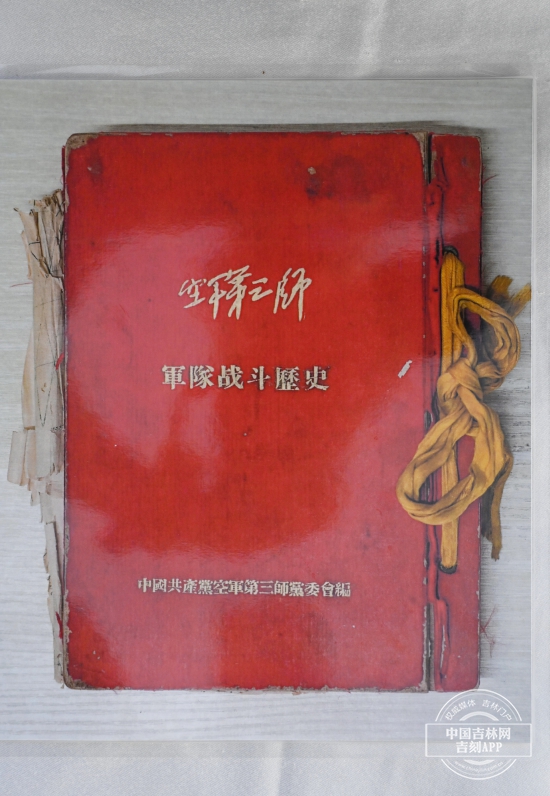 空軍第三師
軍隊战斗歷史
中國共產黨空軍第三師黨委會編
权威媒体 吉林门户
中国吉林网
吉刻APP